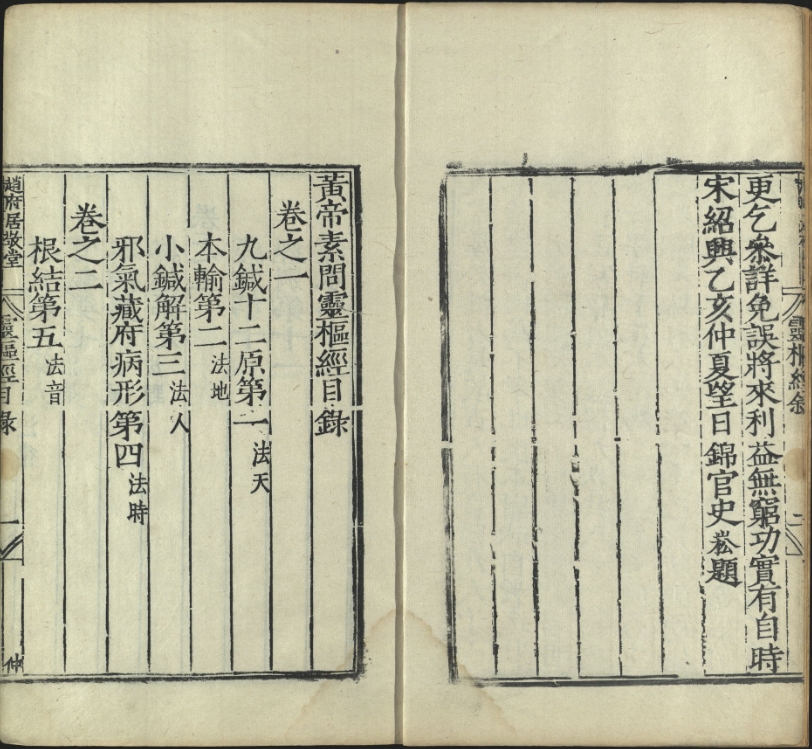 靈樞經敘
二
更乞參詳免誤將來利益無窮功實有自時
宋紹興乙亥仲夏望日錦官史崧題
黃帝素問靈樞經目錄
卷之一
九鍼十二原第一 法天
本輸第二 法地
小鍼解第三 法人
邪氣藏府病形第四 法時
卷之二
根結第五 法音
趙府居敬堂
靈樞經目錄
一
仲